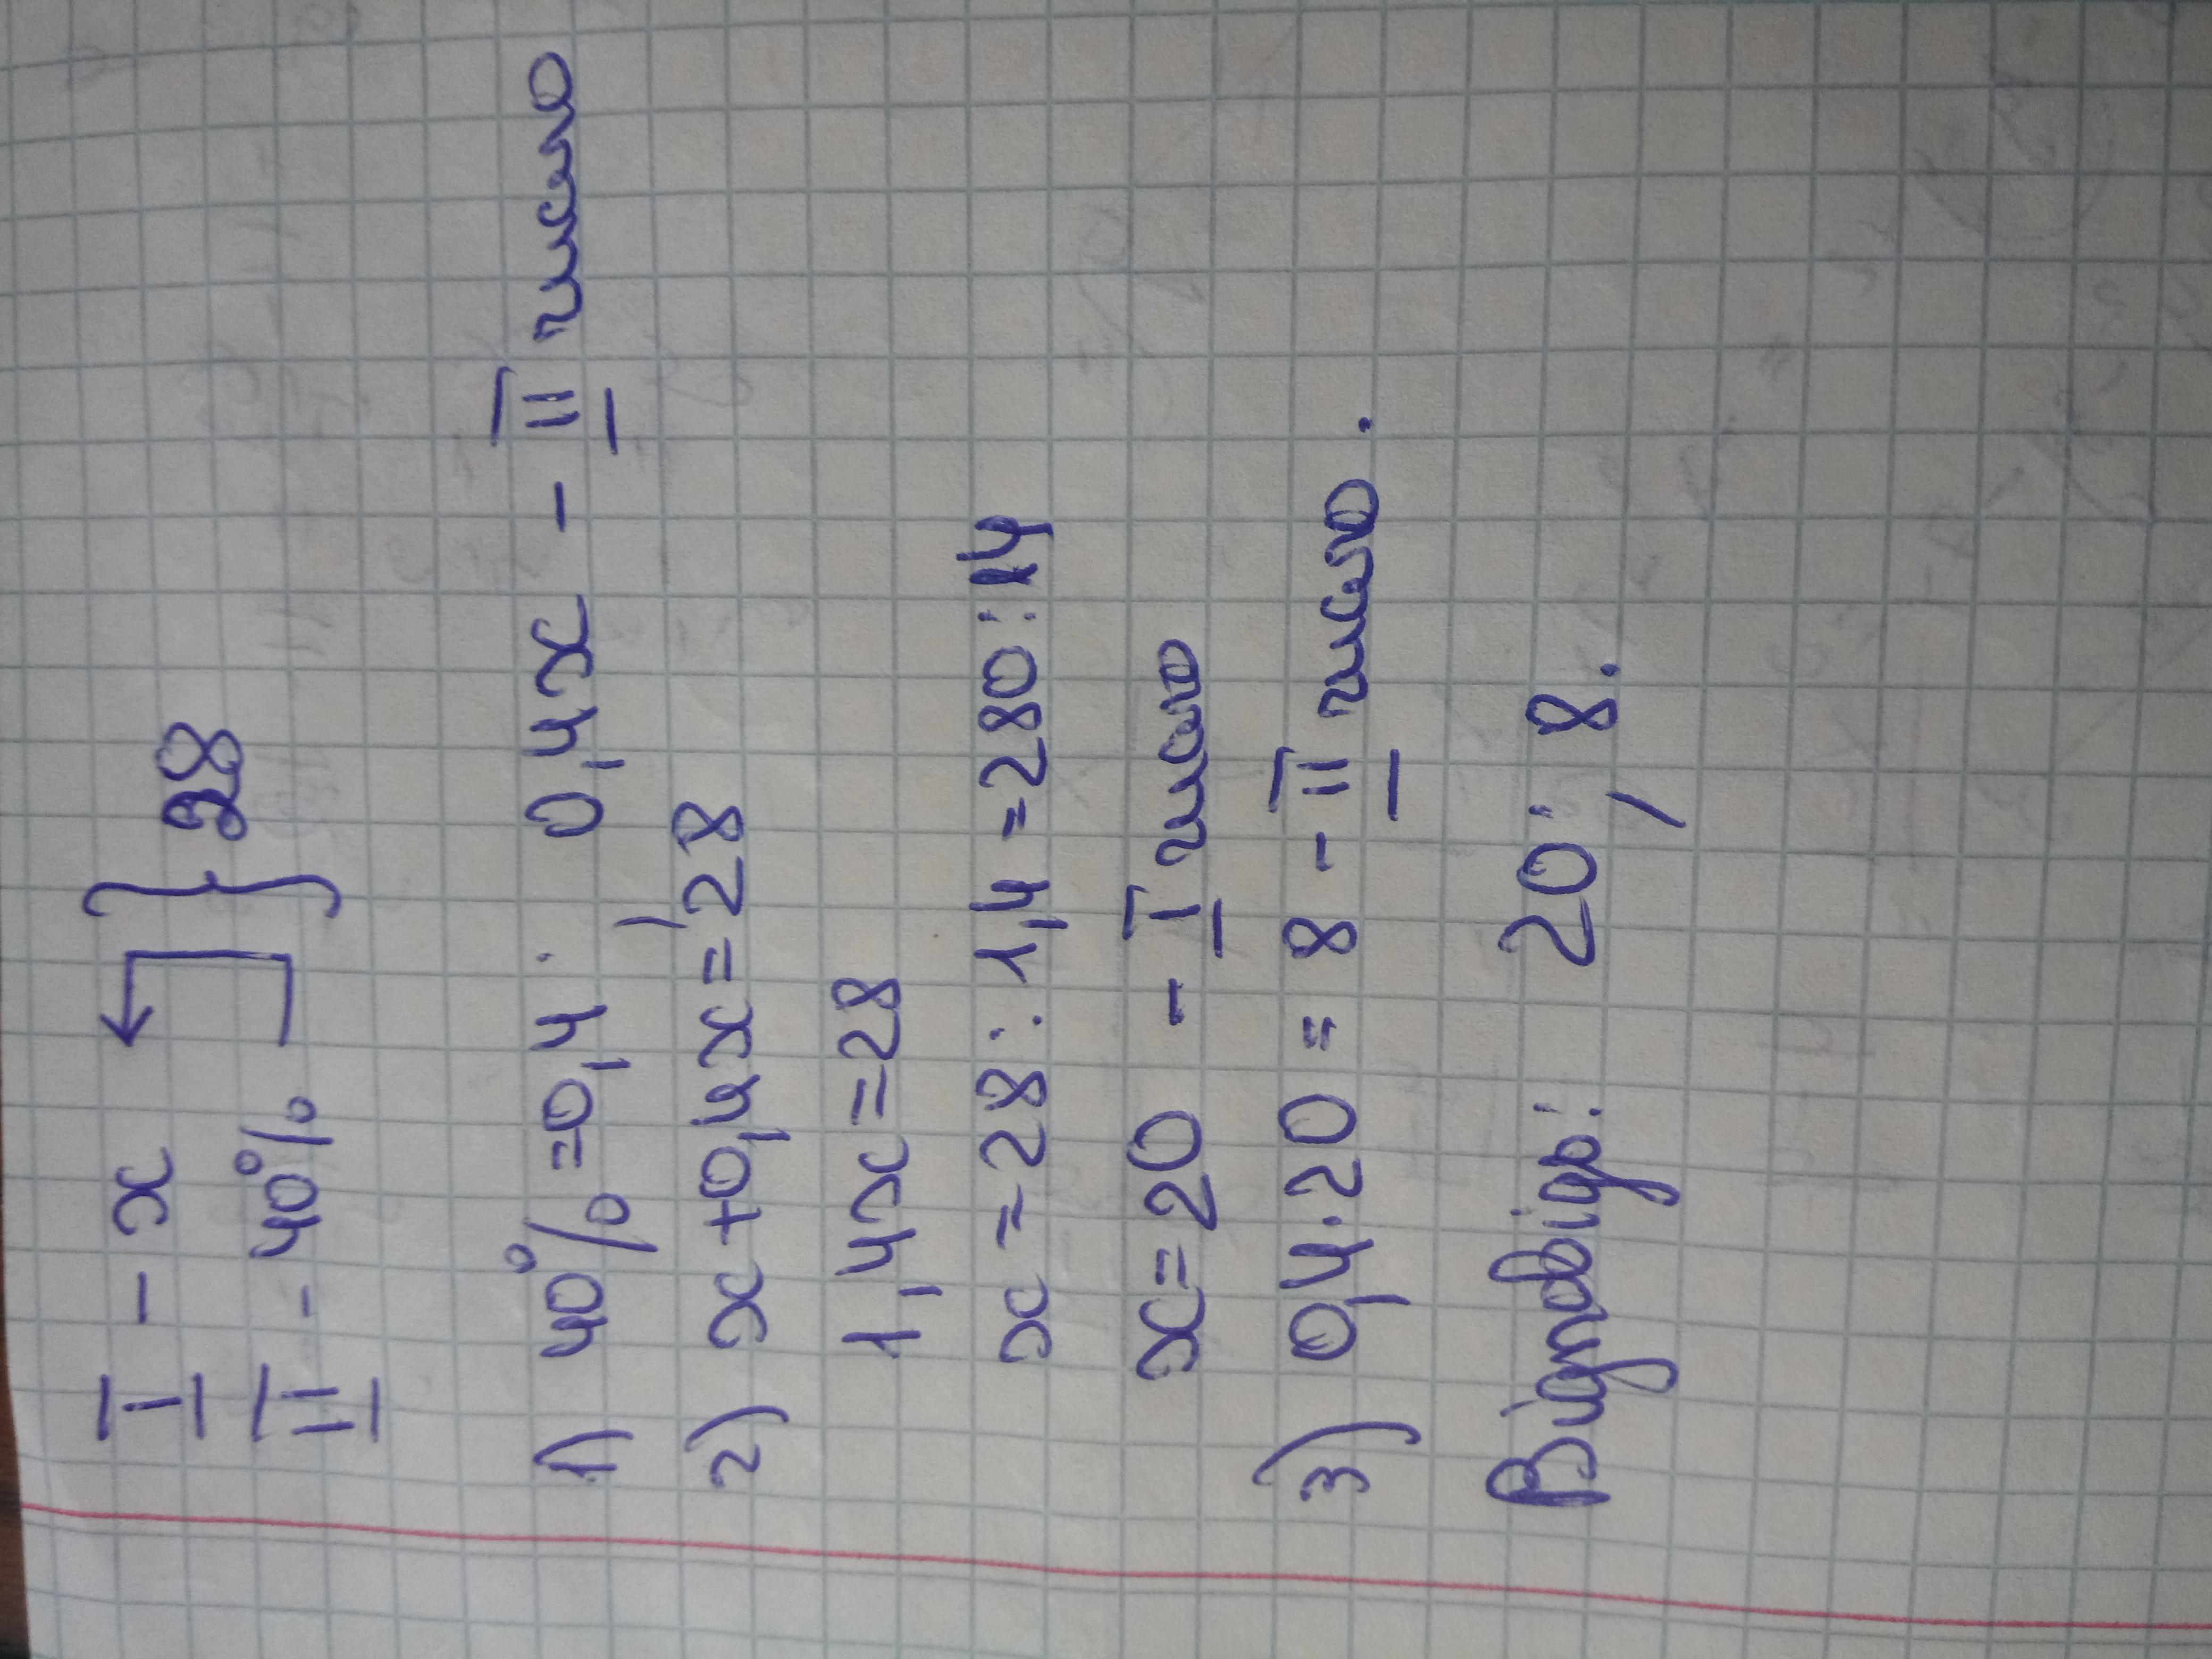 I - x
II - 40% } 28
1) 40%=0,4. 0,4x - II число
2) x+0,4x=28
1,4x=28
x=28:1,4=280:14
x=20 - I число
3) 0,4·20=8 - II число.
Відповідь: 20; 8.